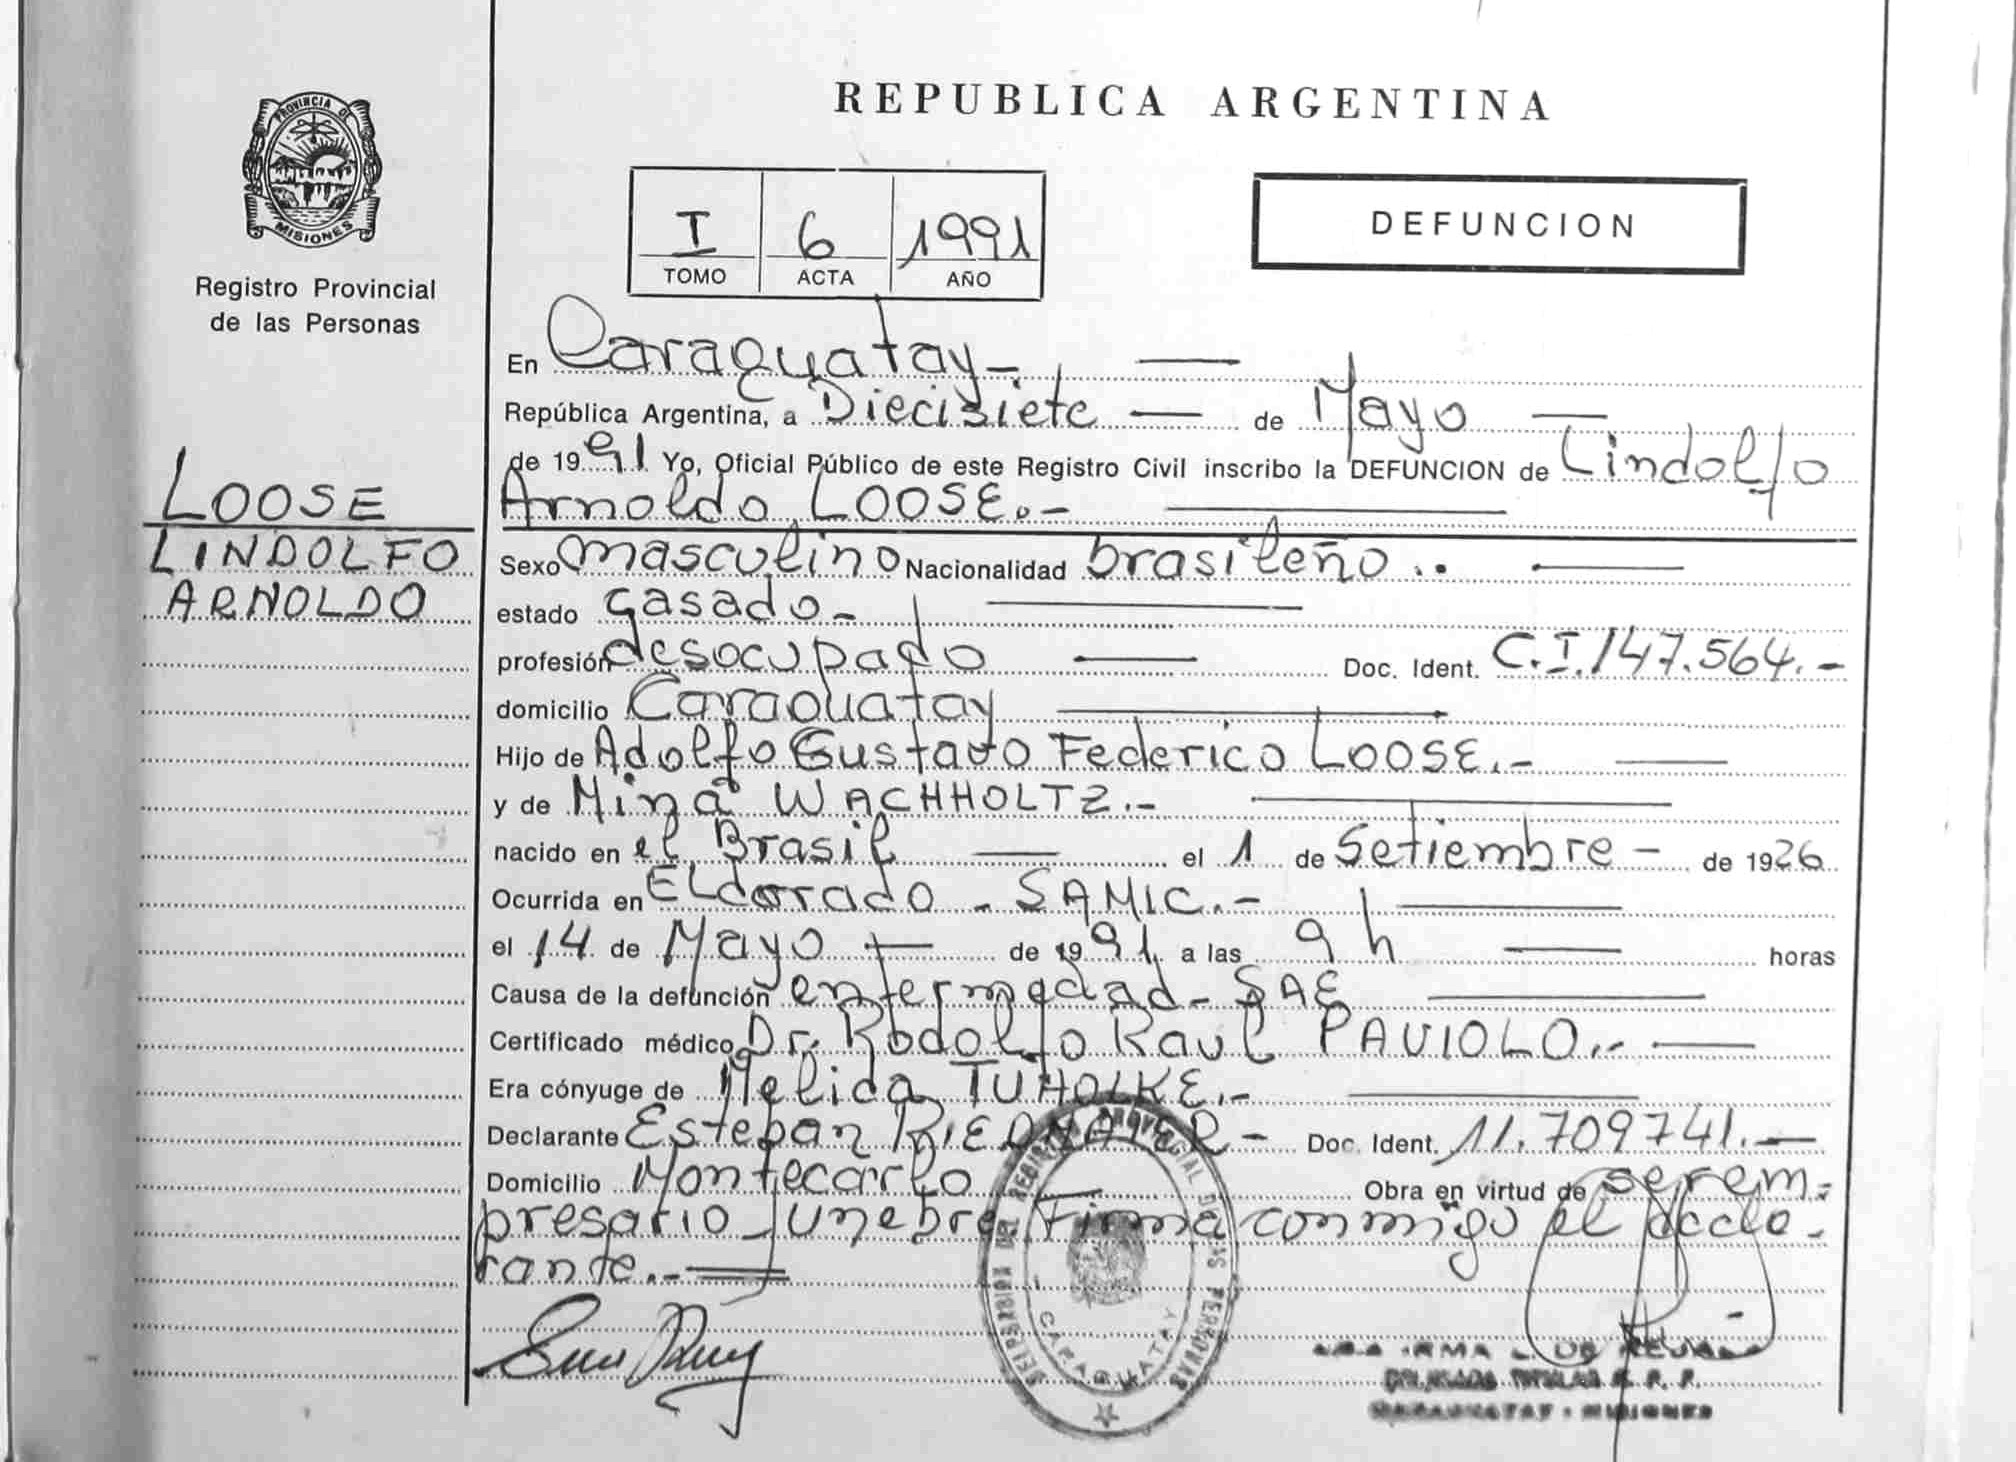 PROVINCIA DE
MISIONES
Registro Provincial
de las Personas
LOOSE
LINDOLFO
ARNOLDO
REPUBLICA ARGENTINA
I 6 1991
TOMO ACTA AÑO
DEFUNCION
En Caraguatay.-
República Argentina, a Diecisiete de Mayo
de 1991 Yo, Oficial Público de este Registro Civil inscribo la DEFUNCION de Lindolfo
Arnoldo LOOSE.-
Sexo masculino Nacionalidad brasileño..
estado casado-
profesión desocupado Doc. Ident. C.I.147.564.-
domicilio Caraguatay
Hijo de Adolfo Gustavo Federico LOOSE.-
y de Mina WACHHOLTZ.-
nacido en el Brasil el 1 de Setiembre - de 1926
Ocurrida en ELdorado - SAMIC.-
el 14 de Mayo de 1991 a las 9 h horas
Causa de la defunción enfermedad- SAE
Certificado médico Dr. Rodolfo Raul PAVIOLO.-
Era cónyuge de Nelida TUHOLKE.-
Declarante Esteban Doc. Ident. 11.709741.-
Domicilio Montecarlo Obra en virtud de ser em-
presario funebre Firma conmigo el decla-
rante.-
CARAGUATAY
IRMA L. DE
CARAGUATAY - MISIONES